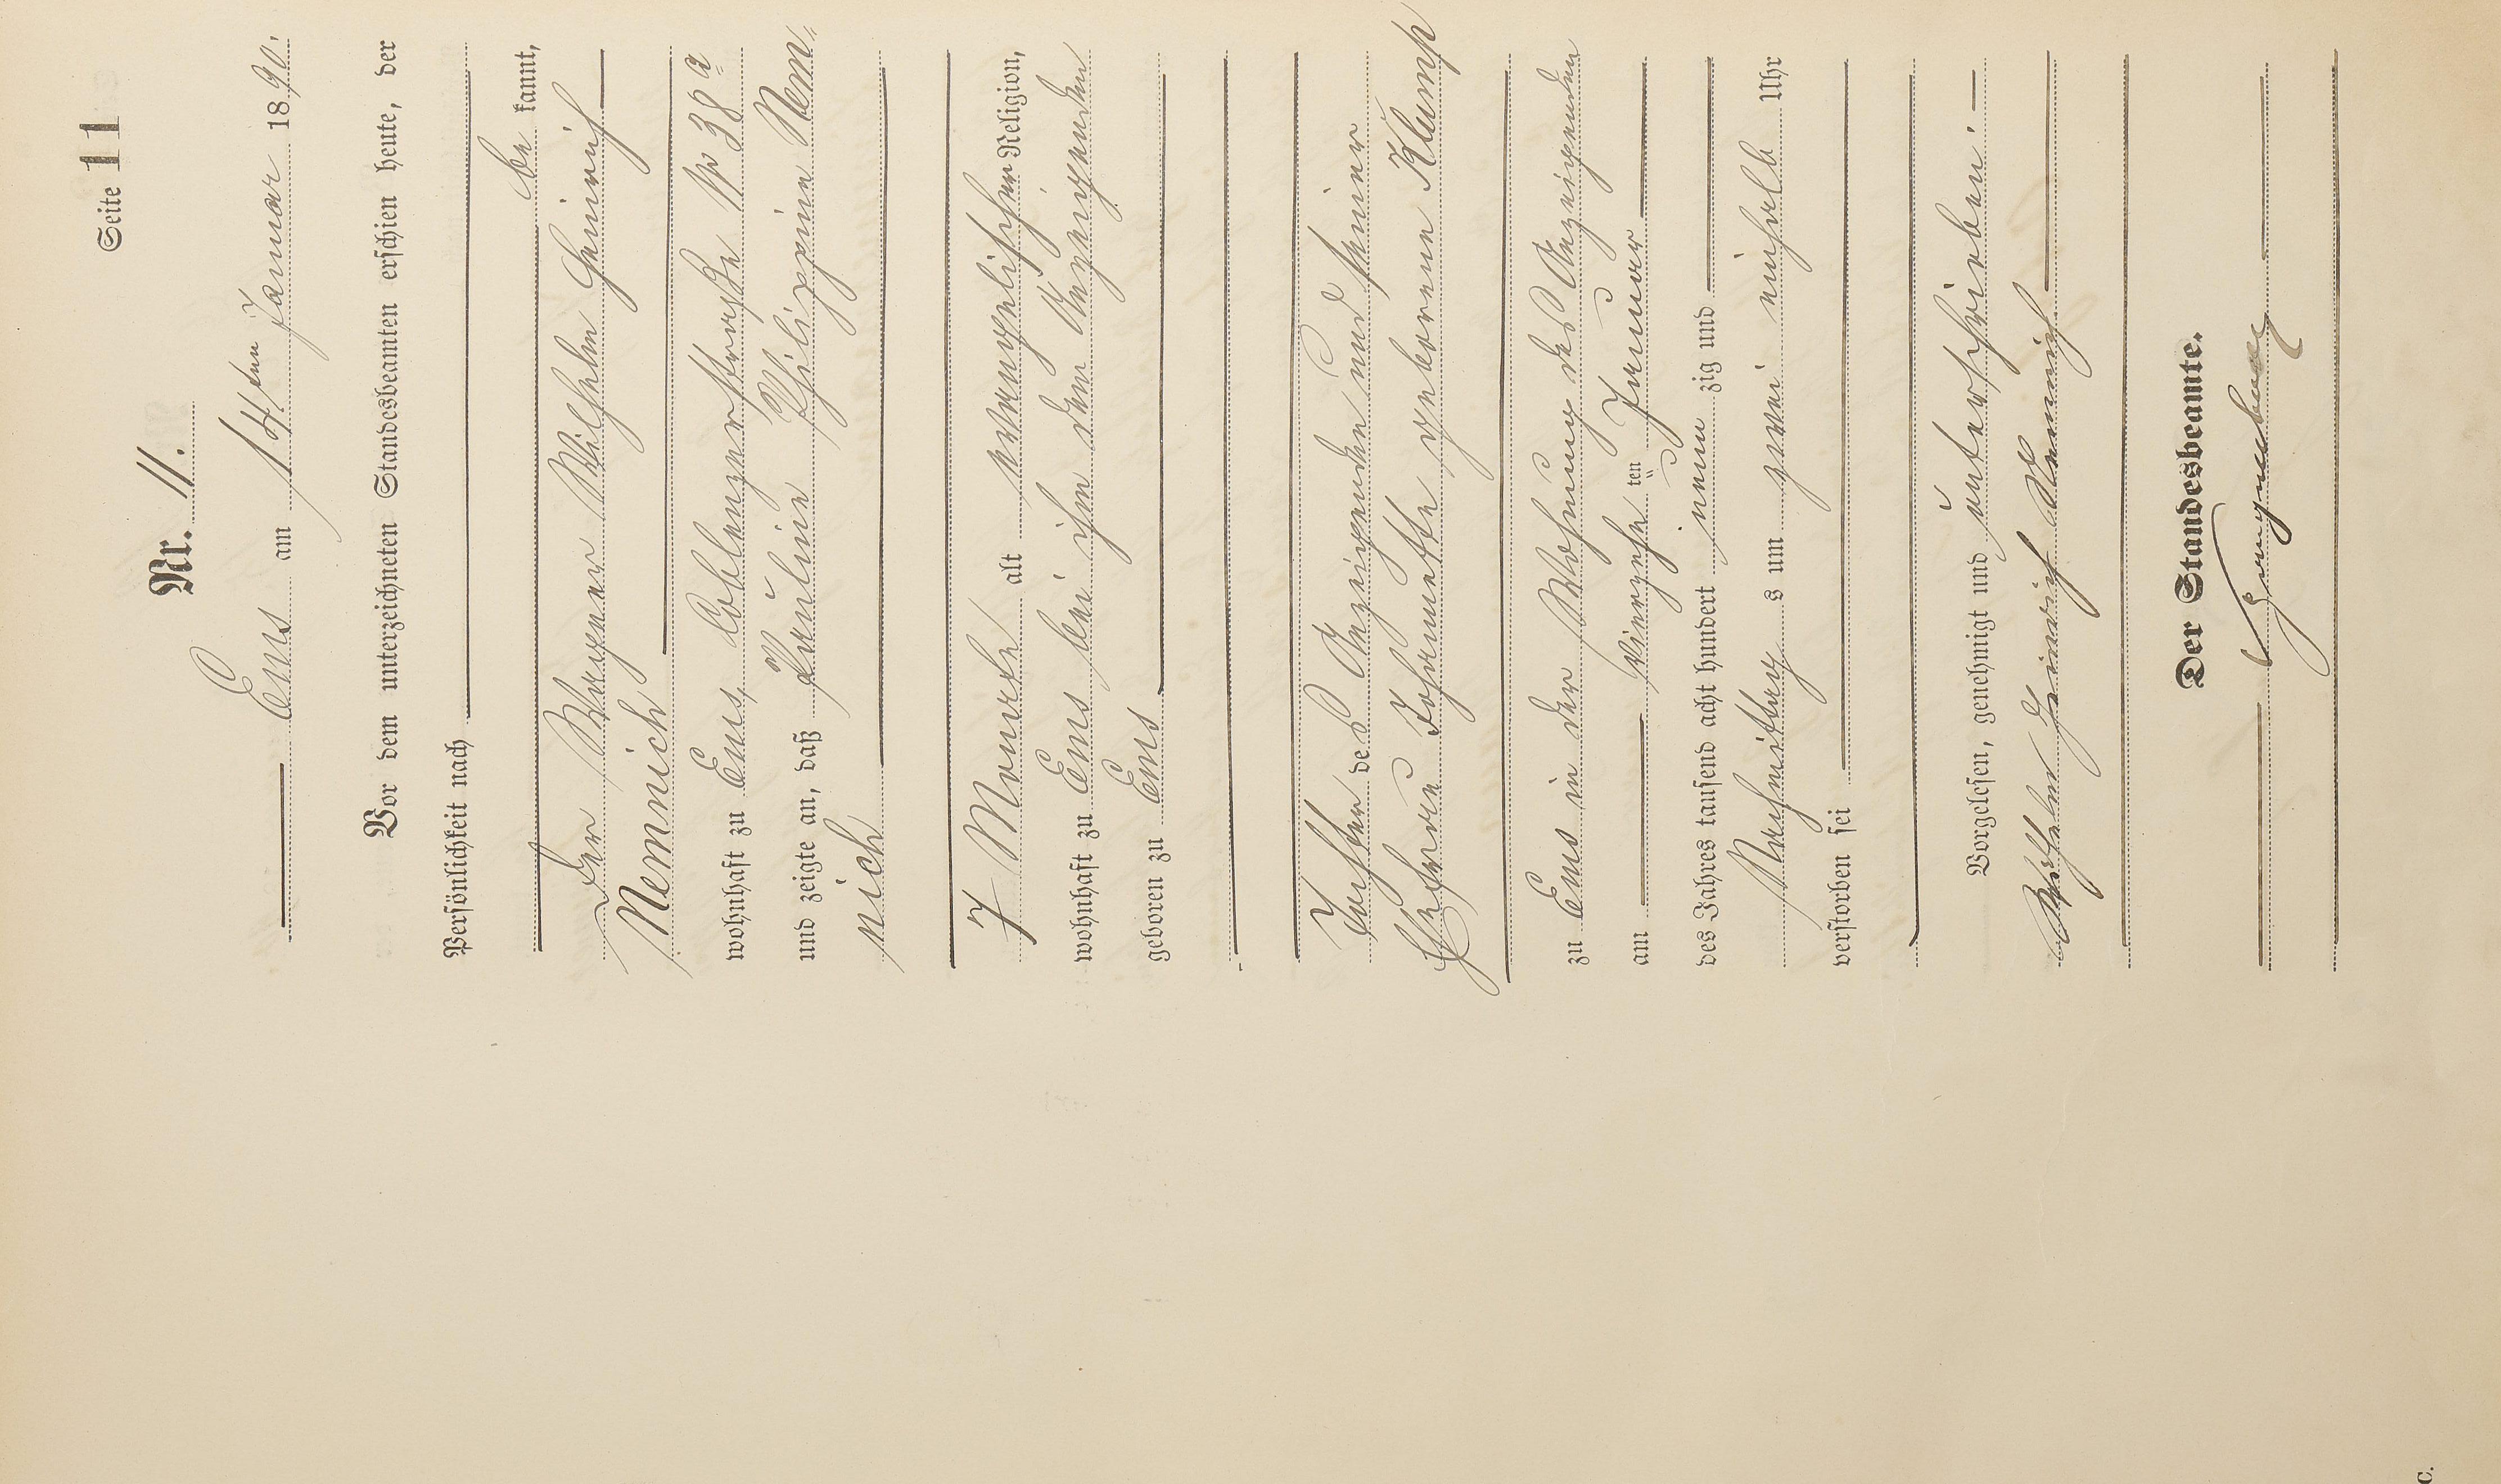 Seite 11
Nr. 11.
Ems am 14ten Januar 1890.
Vor dem unterzeichneten Standesbeamten erschien heute, der
Persönlichkeit nach
be kannt,
der Wagener Wilhelm Heinrich
Nemnich
wohnhaft zu Ems, Coblenzerstraße No 38 a
und zeigte an, daß Pauline Philippine Nem-
nich
7 Monate alt evangelischer Religion,
wohnhaft zu Ems bei ihm dem Anzeigenden
geboren zu Ems
Tochter des Anzeigenden und seiner
Ehefrau Johannette geborene Klump
zu Ems in der Wohnung des Anzeigenden
am vierzehnten Januar
des Jahres tausend acht hundert neunzig und
Nachmittags um zwei einhalb Uhr
verstorben sei
Vorgelesen, genehmigt und unterschrieben.
Wilhelm Heinrich Nemnich
Der Standesbeamte.
C.